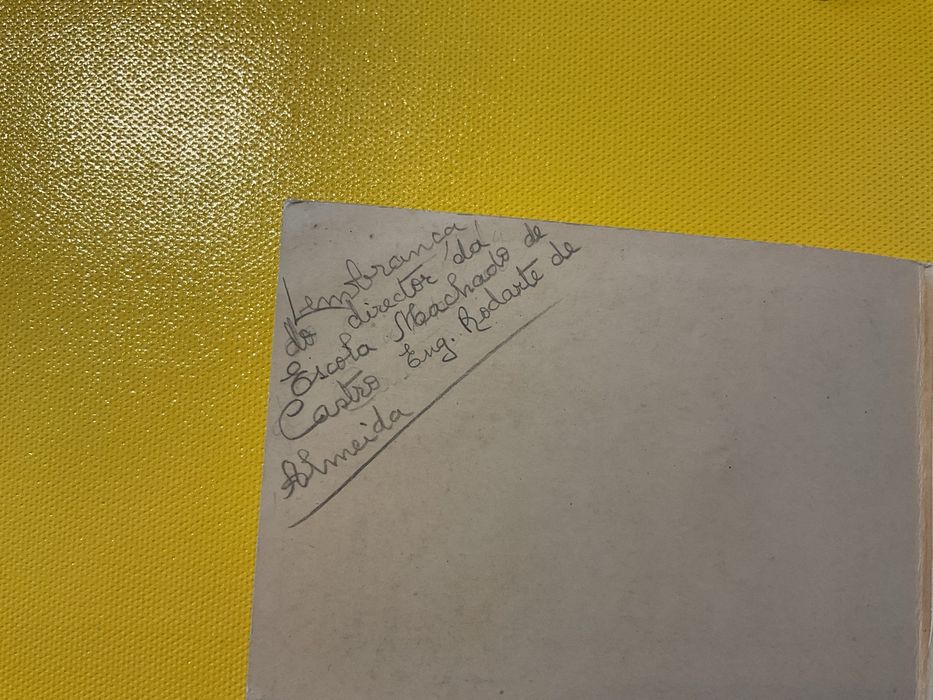 Lembrança
do director da
Escola Machado de
Castro Eng. Rodarte de
Almeida